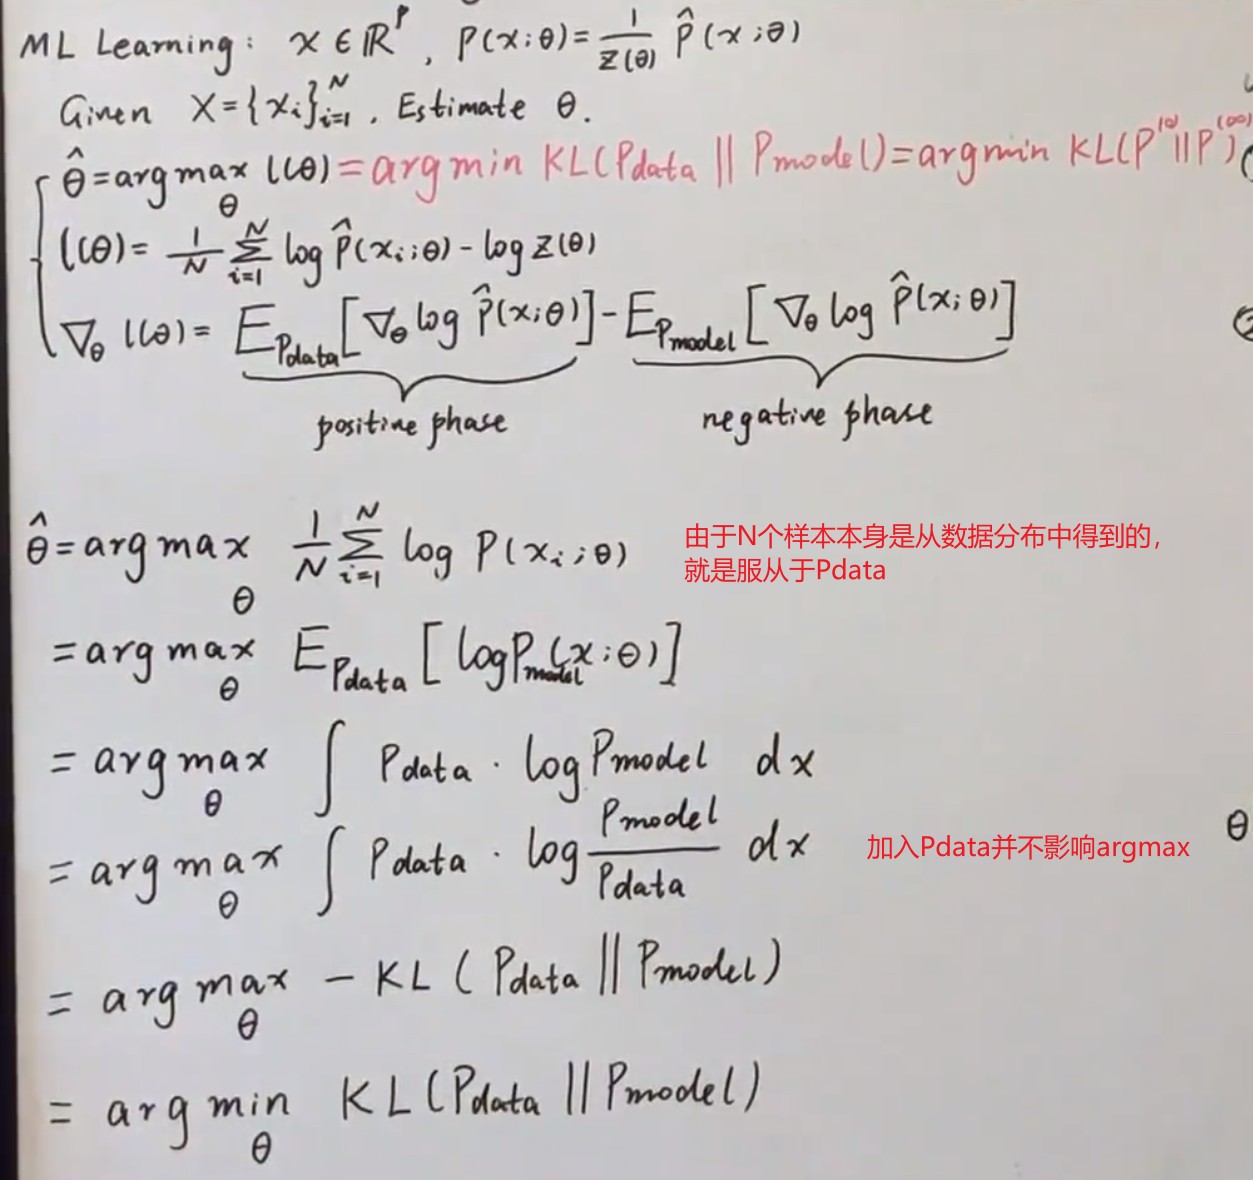 ML Learning: x ∈ ℝᵖ, P(x;θ)=1/Z(θ) P̂(x;θ)
Given X={xᵢ}ᵢ₌₁ᴺ. Estimate θ.
θ̂=arg max_θ l(θ)=arg min KL(Pdata || Pmodel)=arg min KL(P⁽⁰⁾||P⁽∞⁾)
l(θ)= 1/N ∑ᵢ₌₁ᴺ log P̂(xᵢ;θ) - log Z(θ)
∇_θ l(θ)= E_Pdata[∇_θ log P̂(x;θ)] - E_Pmodel[∇_θ log P̂(x;θ)]
positive phase negative phase
θ̂=arg max_θ 1/N ∑ᵢ₌₁ᴺ log P(xᵢ;θ)
由于N个样本本身是从数据分布中得到的,
就是服从于Pdata
=arg max_θ E_Pdata[log Pmodel(x;θ)]
=arg max_θ ∫ Pdata · log Pmodel dx
=arg max_θ ∫ Pdata · log Pmodel/Pdata dx
加入Pdata并不影响argmax
θ
=arg max_θ - KL(Pdata || Pmodel)
=arg min_θ KL(Pdata || Pmodel)